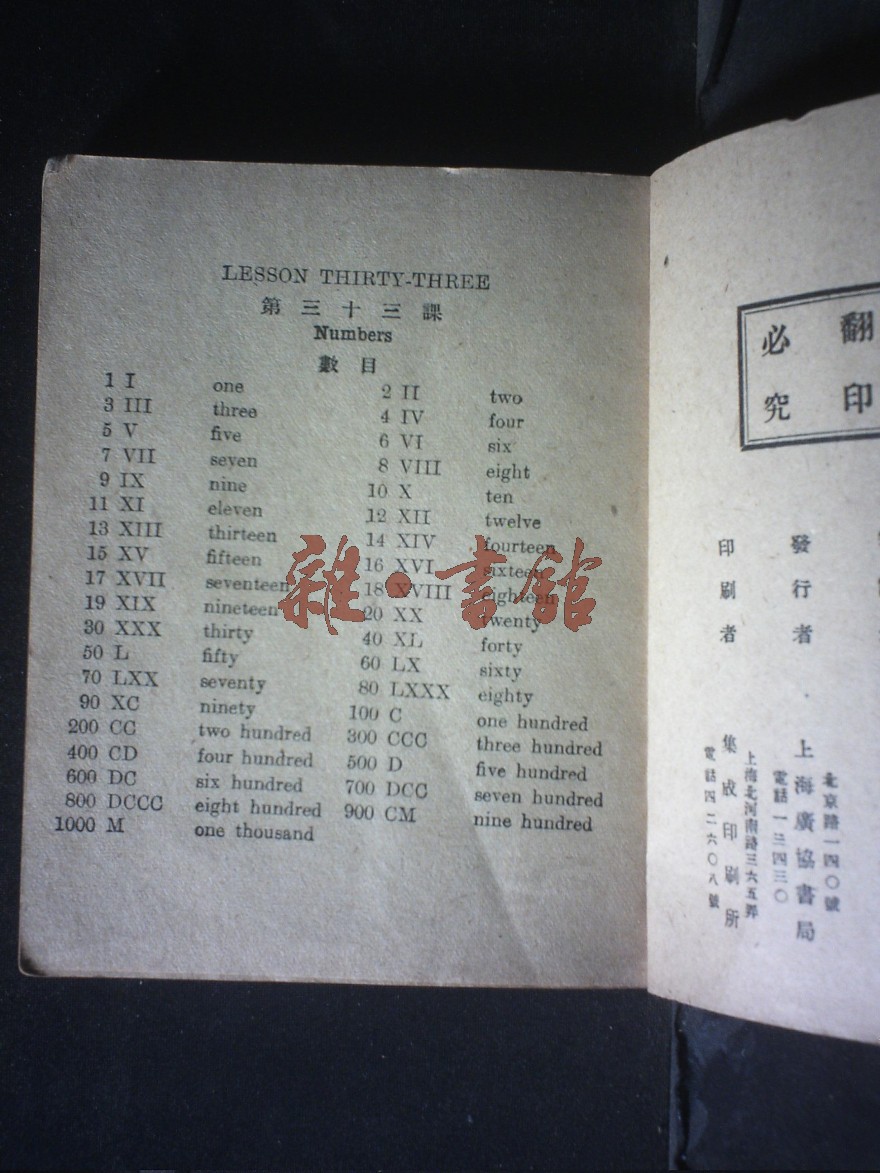 LESSON THIRTY-THREE
第三十三課
Numbers
數目
1 I one 2 II two
3 III three 4 IV four
5 V five 6 VI six
7 VII seven 8 VIII eight
9 IX nine 10 X ten
11 XI eleven 12 XII twelve
13 XIII thirteen 14 XIV fourteen
15 XV fifteen 16 XVI sixteen
17 XVII seventeen 18 XVIII eighteen
19 XIX nineteen 20 XX twenty
30 XXX thirty 40 XL forty
50 L fifty 60 LX sixty
70 LXX seventy 80 LXXX eighty
90 XC ninety 100 C one hundred
200 CC two hundred 300 CCC three hundred
400 CD four hundred 500 D five hundred
600 DC six hundred 700 DCC seven hundred
800 DCCC eight hundred 900 CM nine hundred
1000 M one thousand
雜·書館
翻印
必究
發行者 上海廣協書局
北京路一四〇號
電話一三四三〇
印刷者 集成印刷所
上海北河南路三六五弄
電話四二六〇八號